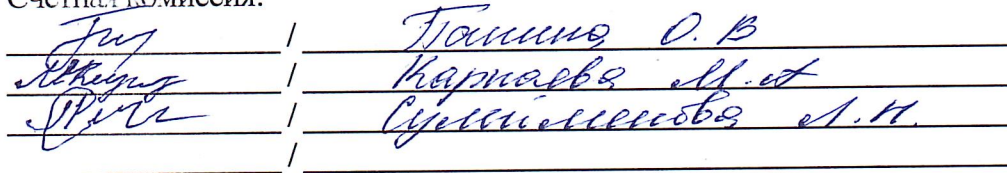 Счетная комиссия:
/ Панина О. В
/ Карпаева М. А
/ Сулейменова Л. Н.
/